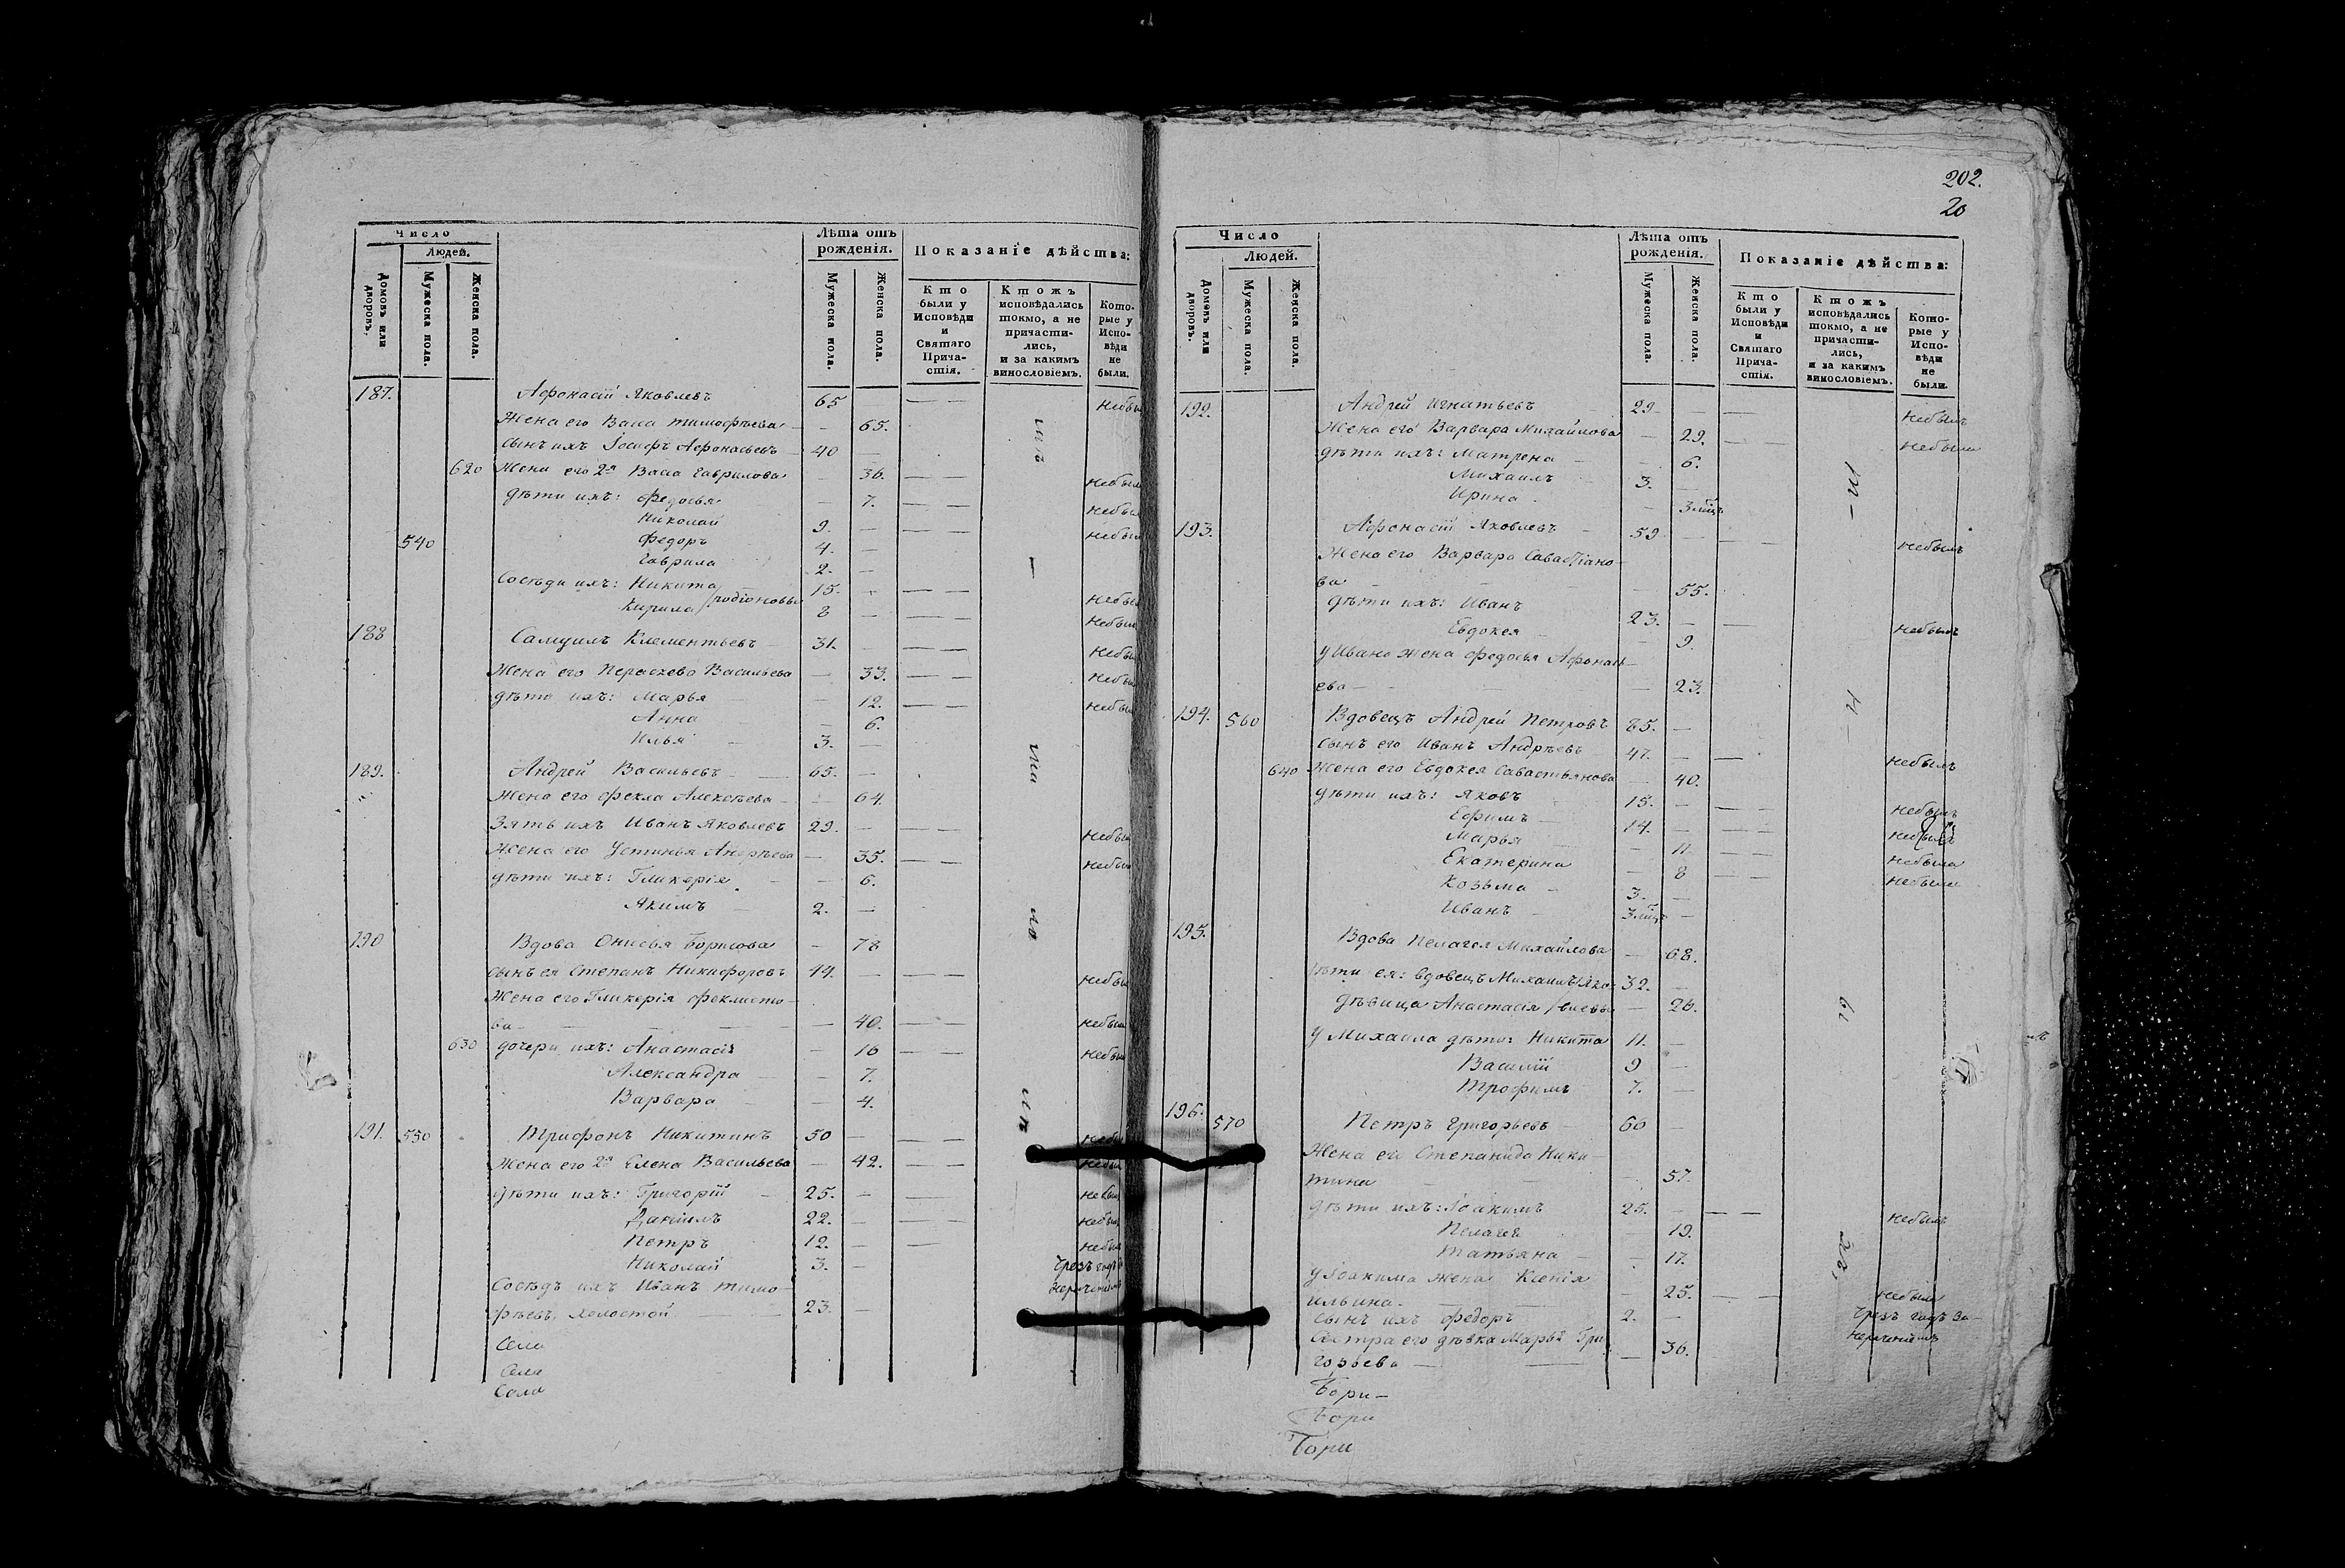 Число
Людей.
Домовъ или дворовъ.
Мужеска пола.
Женска пола.
Лѣта отъ рожденія.
Мужеска пола.
Женска пола.
Показаніе дѣйства:
Кто были у Исповѣди и Святаго Прича-стія.
Ктожъ исповѣдались токмо, а не причасти-лись, и за какимъ винословіемъ.
Кото-рые у Испо-вѣди не были.
187. Афонасій Яковлевъ 65 — — небы
Жена его Васа Тимофѣева — 65.
Сынъ ихъ Іосифъ Афонасьевъ 40 —
620 Жена его 2я Васа Гаврилова — 36. — — небыл
дѣти ихъ: Федосья — 7. — — небыл
Николай 9. — — — небыл
540 Федоръ 4. —
Гаврила 2. —
Сосѣди ихъ: Никита 15. — — — небыл
Кирила Родіоновы 8 — — — небыл
188 Самуилъ Клементьевъ 31. — — — небыл
Жена его Пераскева Васильева — 33. — — небыл
дѣти ихъ: Марья — 12. — — небыл
Анна — 6.
Илья 3. —
189. Андрей Васильевъ 65. —
Жена его Фекла Алексѣева — 64.
Зять ихъ Иванъ Яковлевъ 29. — — — небыл
Жена его Устинья Андрѣева — 35. — — небыл
дѣти ихъ: Гликерія — 6.
Якимъ 2. —
190 Вдова Онисья Борисова — 78
сынъ ея Степанъ Никифоровъ 44. — — — небыл
Жена его Гликерія Феклисто-
ва — 40. — — небыл
630 дочери ихъ: Анастасія — 16 — — небыл
Александра — 7.
Варвара — 4.
191. 550 Трифонъ Никитинъ 50 — — — небы
Жена его 2я Елена Васильева — 42. — — небыл
дѣти ихъ: Григорій 25. — — — небыл
Даніилъ 22. — — — небыл
Петръ 12. — — небыл
Николай 3. — Чрезъ годъ
Сосѣдъ ихъ Иванъ Тимо-
фѣевъ, холостой 23. —
Села
Села
Села
202.
20
Число
Людей.
Домовъ или дворовъ.
Мужеска пола.
Женска пола.
Лѣта отъ рожденія.
Мужеска пола.
Женска пола.
Показаніе дѣйства:
Кто были у Исповѣди и Святаго Прича-стія.
Ктожъ исповѣдались токмо, а не причасти-лись, и за какимъ винословіемъ.
Кото-рые у Испо-вѣди не были.
192. Андрей Игнатьевъ 29 — — небылъ
Жена его Варвара Михайлова — 29. — — небыла
дѣти ихъ: Матрена — 6.
Михаилъ 3. —
Ирина — 3 мцъ
193. Афонасій Яковлевъ 59 — — — небылъ
Жена его Варвара Савастіано-
ва — 55.
дѣти ихъ: Иванъ 23. — — небылъ
Евдокея — 9.
у Ивана жена Федосья Афонась-
ева — 23.
194. 560 Вдовецъ Андрей Петровъ 85. —
Сынъ его Иванъ Андрѣевъ 47. — — небылъ
640 Жена его Евдокея Савастьянова — 40.
дѣти ихъ: Яковъ 15. — — — небылъ
Ефимъ 14. — — — небылъ
Марья — 11. — — небыла
Екатерина — 8 — — небыла
Козьма 3. —
Иванъ 3 мцъ —
195. Вдова Пелагея Михайлова — 68.
дѣти ея: вдовецъ Михаилъ Яко- 32. —
дѣвица Анастасія влевы — 26.
у Михаила дѣти: Никита 11. —
Василій 9 —
Трофимъ 7. —
196. 570 Петръ Григорьевъ 60 —
Жена его Степанида Ники-
тина — 57.
дѣти ихъ: Іоакимъ 25. — — — небылъ
Пелагея — 19.
Татьяна — 17.
у Іоакима жена Ксенія
Ильина. — 25. — — небыла
сынъ ихъ Федоръ 2. — Чрезъ годъ за-
Сестра его дѣвка Марья Гри- нерачениемъ
горьева — 36.
Бори-
Бори
Бори